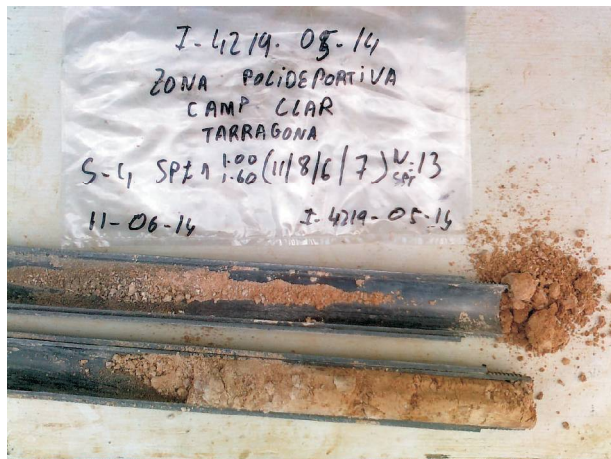 I-4219-05-14
ZONA POLIDEPORTIVA
CAMP CLAR
TARRAGONA
S-4 SPT 1 1.00 1.60 (11/8/6/7) N SPT = 13
11-06-14 I-4219-05-14